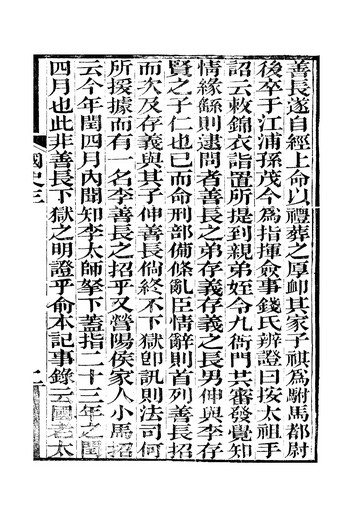 善長遂自經上命以禮葬之厚卹其家子祺為駙馬都尉
後卒于江浦孫茂今為指揮僉事錢氏辨證曰按太祖手
詔云敕錦衣詣置所提到親弟姪令九衙門共審發覺知
情緣繇則逮問者善長之弟存義存義之長男伸與李存
賢之子仁也已而命刑部備條亂臣情辭則首列善長招
而次及存義與其子伸善長倘終不下獄卽訊則法司何
所援據而有一名李善長之招乎又營陽侯家人小馬招
云今年閏四月內聞知李太師拏下蓋指二十三年之閏
四月也此非善長下獄之明證乎俞本記事錄云國老太
國史三
二